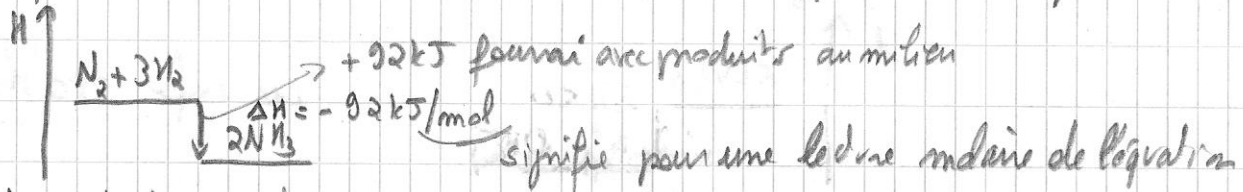 H
+92kJ fourni avec produits au milieu
N₂+3H₂
ΔH=-92kJ/mol
2NH₃
signifie pour une lecture molaire de l'équation